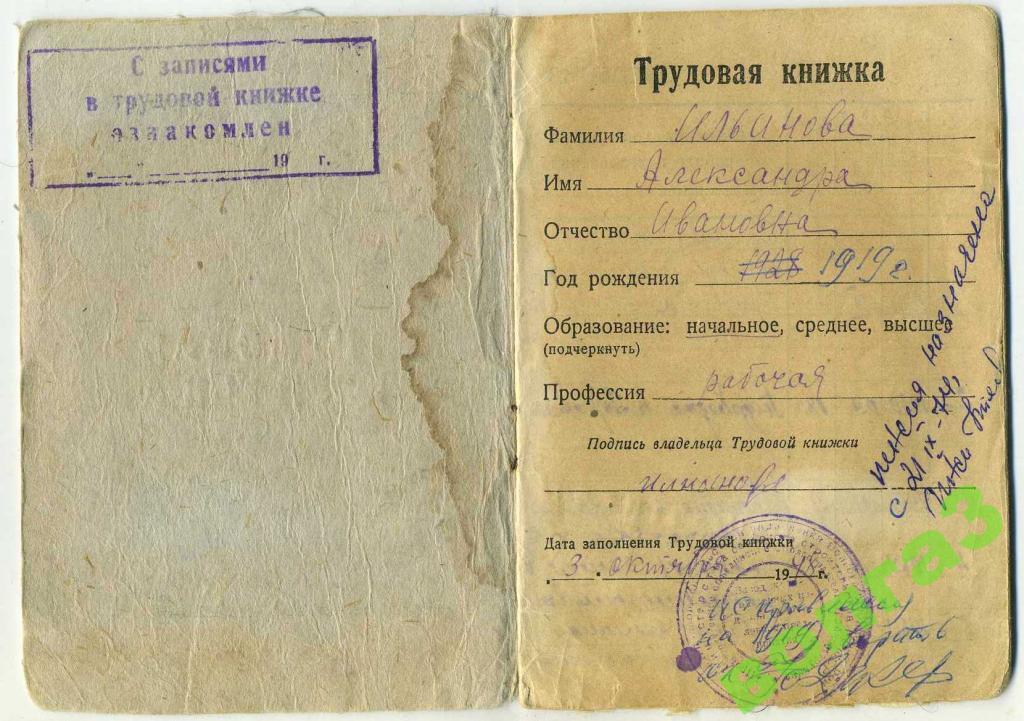 С записями
в трудовой книжке
ознакомлен
„ “ 19 г.
Трудовая книжка
Фамилия Ильинова
Имя Александра
Отчество Ивановна
Год рождения 1928 1919 г.
Образование: начальное, среднее, высшее
(подчеркнуть)
Профессия рабочая
Подпись владельца Трудовой книжки
Дата заполнения Трудовой книжки
3. октября 1948 г.
на 1919
верить
пенсия назначена
с 21 IX-74,
волга3